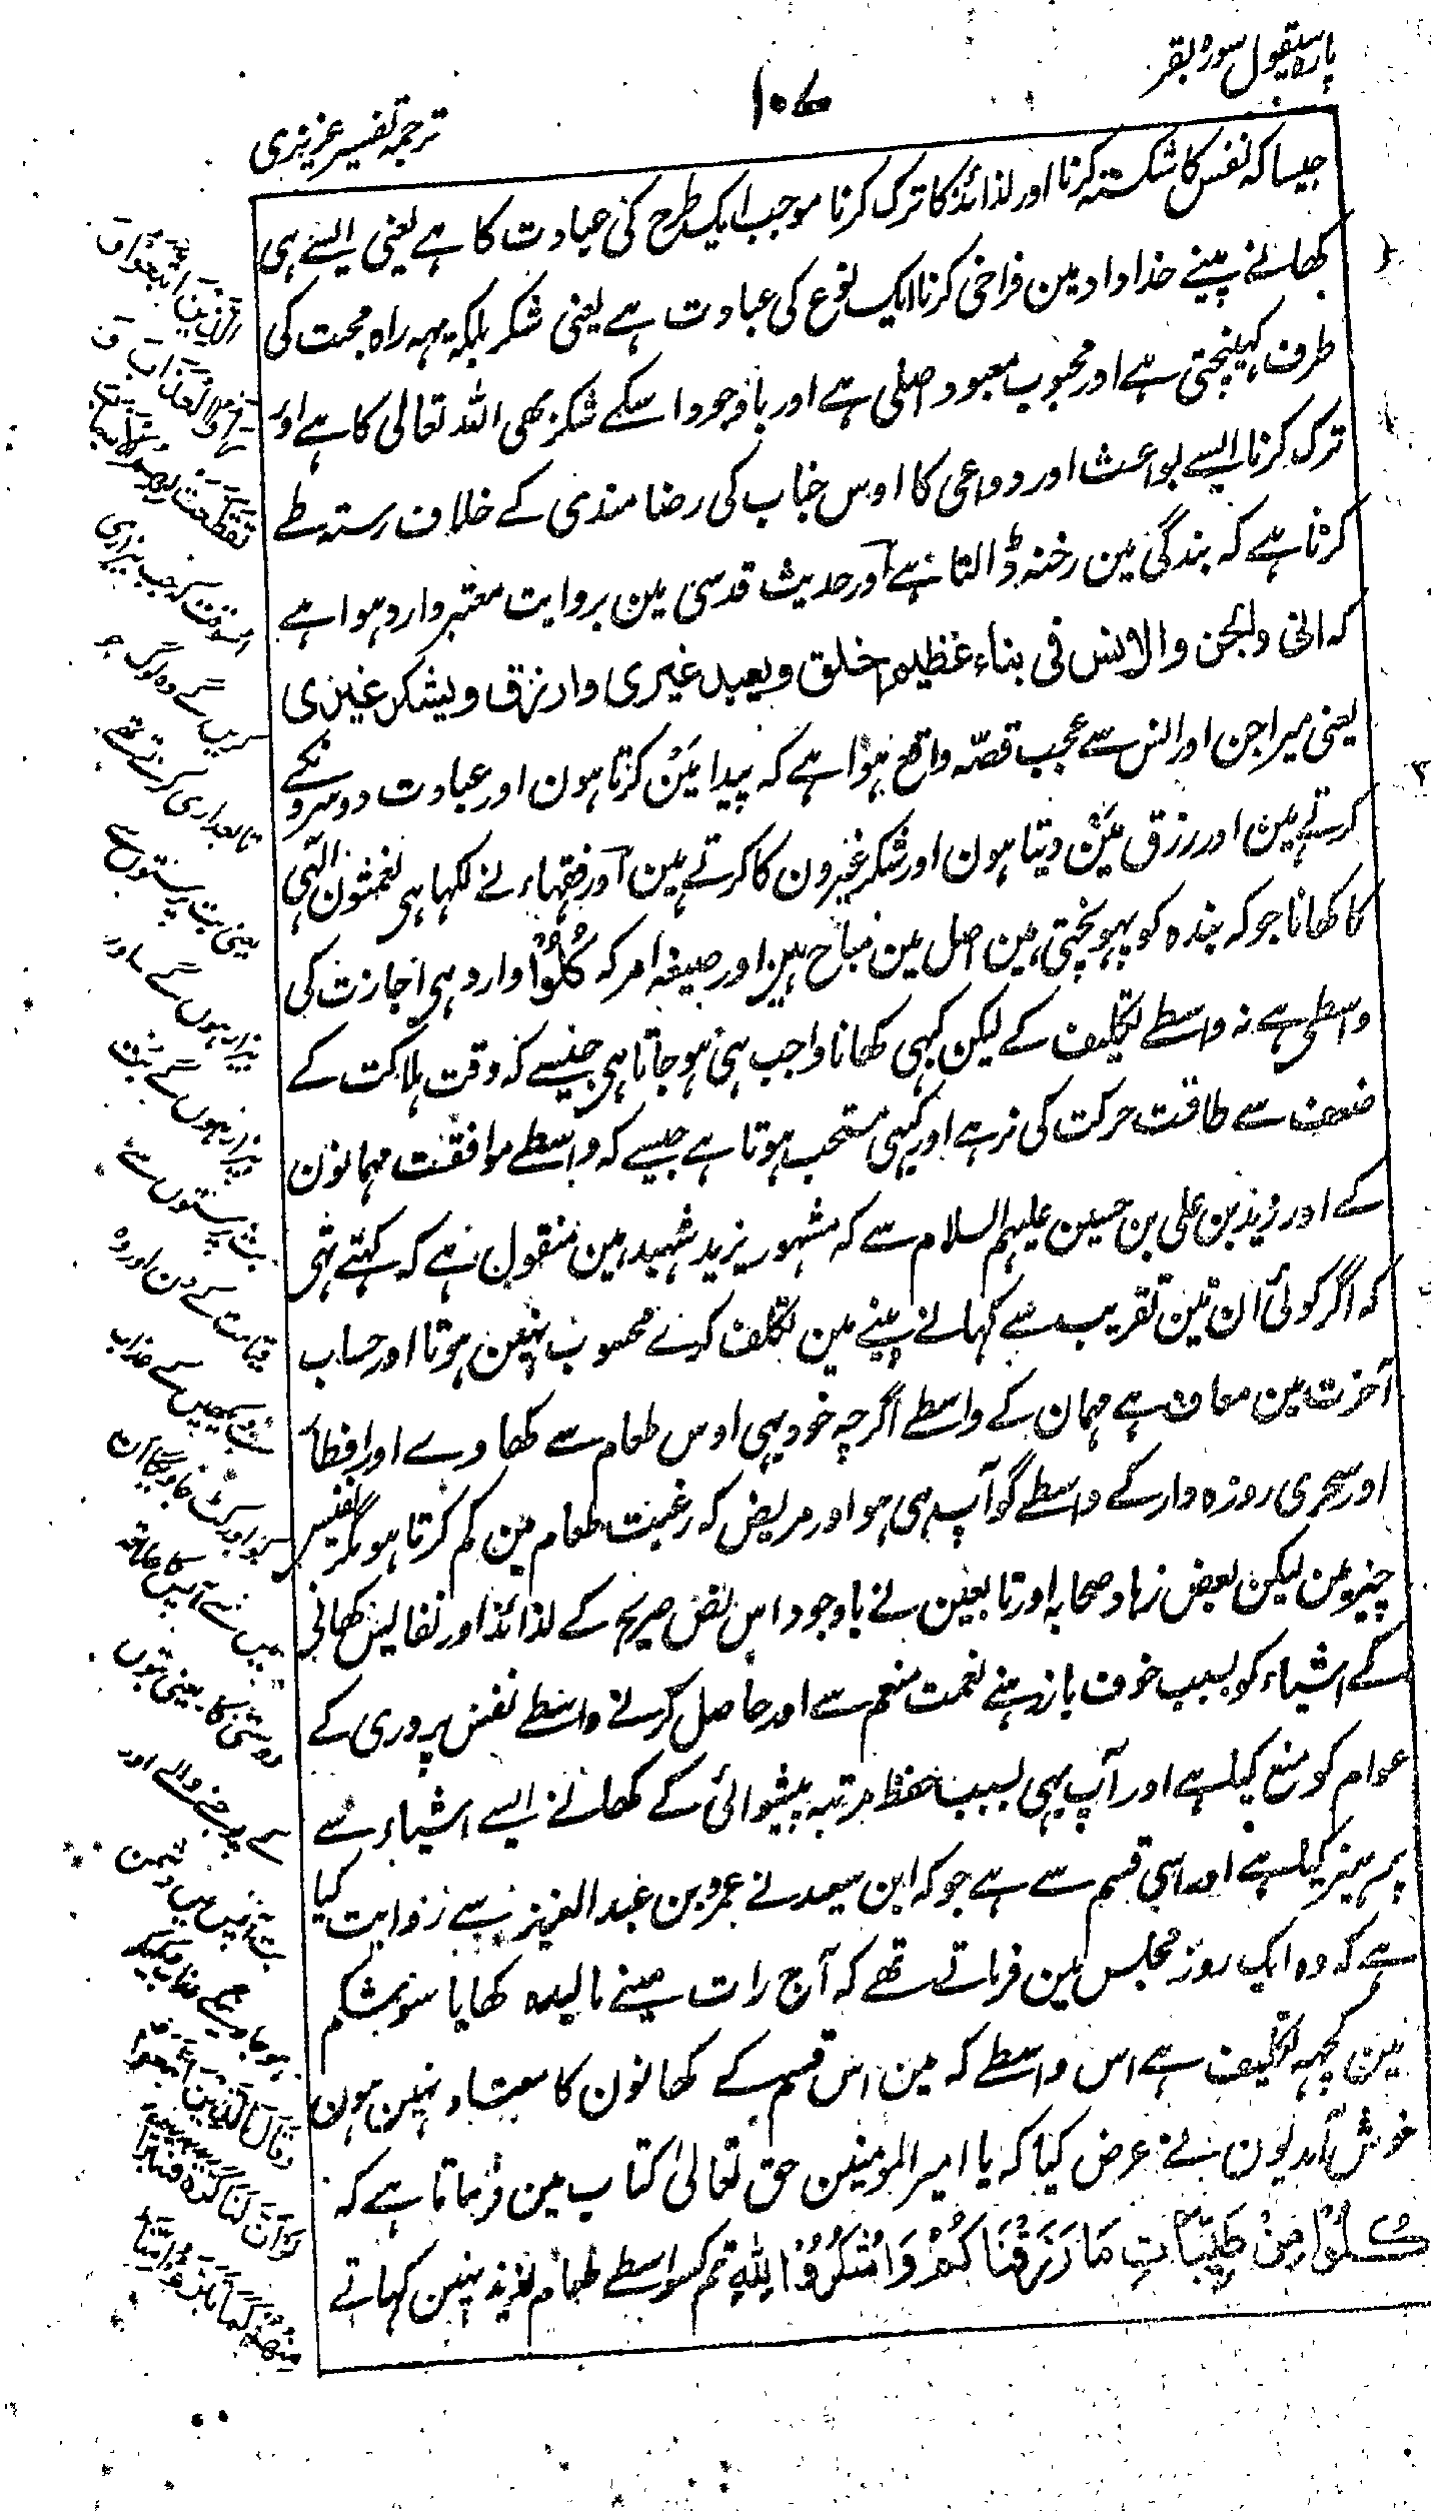 پارہ سیقول سورہ بقر
۱۰۷
ترجمہ تفسیر عزیزی
جیسا کہ نفس کا شکستہ کرنا اور لذائذ کا ترک کرنا موجب ایک طرح کی عبادت کا ہے یعنی ایسے ہی
کھانے پینے خداداد مین فراخی کرنا ایک نوع کی عبادت ہے یعنی شکر بلکہ یہہ راہ محبت کی
طرف کہینچتی ہے اور محبوب معبود اصلی ہے اور باوجود اسکے شکر بھی اللہ تعالی کا ہے اور
ترک کرنا ایسے بواعث اور دواعی کا اوس جناب کی رضامندی کے خلاف رستہ طے
کرنا ہے کہ بندگی مین رخنہ ڈالتا ہے اور حدیث قدسی مین بروایت معتبر وارد ہوا ہے
کہ انی والجن والانس فی بناء عظیم اخلق ویعبد غیری وارزق ویشکر غیری
یعنی میرا جن اور انس سے عجب قصّہ واقع ہوا ہے کہ پیدا مَین کرتا ہون اور عبادت دوسرونکے
کرتے ہین اور رزق مَین دیتا ہون اور شکر غیرون کا کرتے ہین اور فقہاء نے لکہا ہی نعمتون الٰہی
کا کھانا جو کہ بندہ کو پہونچتی ہین اصل مین مباح ہین اور صیغہ امر کہ کُلُوْا وارد ہی اجازت کی
واسطی ہے نہ واسطے تکلیف کے لیکن کبہی کھانا واجب ہی ہوجاتا ہی جیسے کہ وقت ہلاکت کے
ضعف سے طاقت حرکت کی نرہے اور کبہی مستحب ہوتا ہے جیسے کہ واسطے موافقت مہمانون
کے اور زید بن علی بن حسین علیہم السلام سے کہ مشہور بزید شہید ہین منقول ہے کہ کہتے تہی
کہ اگر کوئی ان تین تقریب سے کہانے پینے مین تکلف کرے محسوب نہین ہوتا اور حساب
آخرت مین معاف ہے مہمان کے واسطے اگرچہ خود بہی اوس طعام سے کھاوے اور افطار
اور سحری روزہ دار کے واسطے گو آپ ہی ہو اور مریض کہ رغبت طعام مین کم کرتا ہو مگر نفیس
چیزونمین لیکن بعض زہاد صحابہ اور تابعین نے باوجود اس نص صریح کے لذائذ اور نفایس کھانی
کے اشیاء کو بسبب خوف باز رہنے نعمت منعم سے اور حاصل کرنے واسطے نفس پروری کے
عوام کو منع کیا ہے اور آپ بہی بسبب حفظ مرتبہ پیشوائی کے کھانے ایسے اشیاء سے
پرہیز کیا ہے اور اسی قسم سے ہے جو کہ ابن سعد نے عمرو بن عبد العزیز سے روایت کیا
ہے کہ وہ ایک روز مجلس مین فرماتے تھے کہ آج رات مینے مالیدہ کھایا سو شکم
مین کچہہ تکلیف ہے اس واسطے کہ مین اس قسم کے کھانون کا معتاد نہین ہون
خوش آمدیون نے عرض کیا کہ یا امیر المومنین حق تعالیٰ کتاب مین فرماتا ہے کہ
كُلُوْا مِنْ طَيِّبَاتِ مَا رَزَقْنَاكُمْ وَاشْكُرُوْا لِلّٰهِ تم کسواسطے طعام لذیذ نہین کہاتے
الَّذِيْنَ اتُّبِعُوْا
الْعَذَابَ وَ
تَقَطَّعَتْ بِهِمُ الْاَسْبَابُ
اسوقت کہ جب بیزاری
کریں گے وہ لوگ جو
تابعداری کرتے تھے
یعنی بت پرستوں سے
بیزار ہوں گے اور
بیزار ہوں گے بت
بت پرستوں سے
قیامت کے دن اور وہ
سب دیکھیں گے عذاب
دوستی کا یعنی بتوں
کے پوجنے والے اور
وَقَالَ الَّذِيْنَ اتَّبَعُوْا
لَوْ اَنَّ لَنَا كَرَّةً فَنَتَبَرَّاَ
مِنْهُمْ كَمَا تَبَرَّءُوْا مِنَّا